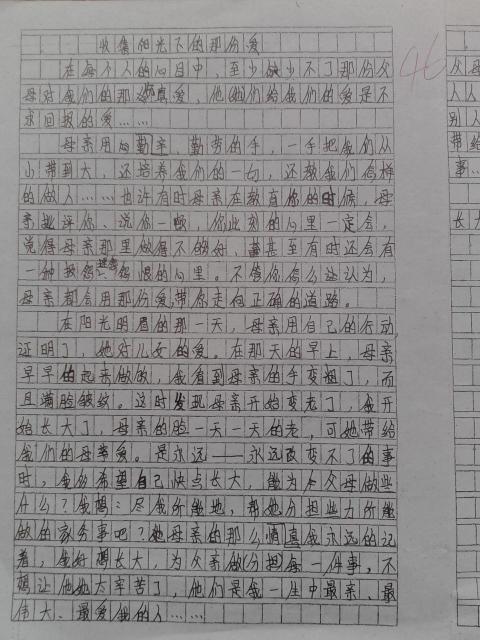 收集阳光下的那份爱
在每个人的心目中，至少缺少不了那份父
母对我们的那份真爱，他(她)们给我们的爱是不
求回报的爱……
母亲用勤亲、勤劳的手，一手把我们从
小带到大，还培养我们的一切，还教我们怎样
的做人……也许有时母亲在教育你的时候，母
亲批评你、说你一顿，你此刻的心里一定会，
觉得母亲那里做得不够好、甚至有时还会有
一种报怨怨恨的心里。不管你怎么让认为，
母亲都会用那份爱，带你走向正确的道路。
在阳光明眉的那一天，母亲用自己的行动
证明了，她对儿女的爱。在那天的早上，母亲
早早的起来做饭，我看到母亲的手变粗了，而
且满脸皱纹。这时发现母亲开始变老了，我开
始长大了，母亲的脸一天一天的老，可她带给
我们的母爱。是永远——永远改变不了的事
时，我多希望自己快点长大，能为父母做些
什么？我想：尽我所能地，帮她分担些力所能
做的家务事吧？她母亲的那么情真我永远的记
着，我好想长大，为父亲做(分担)每一件事，不
想让他她太辛苦了，他们是我一生中最亲、最
伟大、最爱我的人……
46
父母
人人
别人
带给
事…
长大